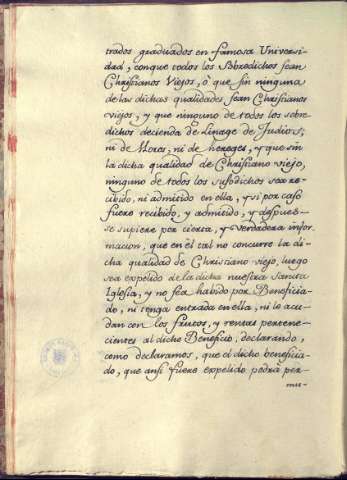 trados graduados en famosa Universi-
dad, conque todos los Sobredichos sean
Christianos Viejos, ó que sin ninguna
de las dichas qualidades sean Christianos
viejos, y que ninguno de todos los sobre
dichos decienda de Linage de Judios,
ni de Moros, ni de hereges, y que sin
la dicha qualidad de Christiano viejo,
ninguno de todos los susodichos sea re-
cibido, ni admitido en ella, y si por caso
fuere recibido, y admitido, y despues
se supiere por cierta, y verdadera infor
macion, que en el tal no concurre la di-
cha qualidad de Christiano viejo, luego
sea expelido de la dicha nuestra Sancta
Iglesia, y no sea habido por Beneficia-
do, ni tenga entrada en ella, ni le acu-
dan con los frutos, y rentas pertene-
cientes al dicho Beneficio, declarando,
como declaramos, que el dicho beneficia-
do, que ansi fuere expelido podrá per-
mu-